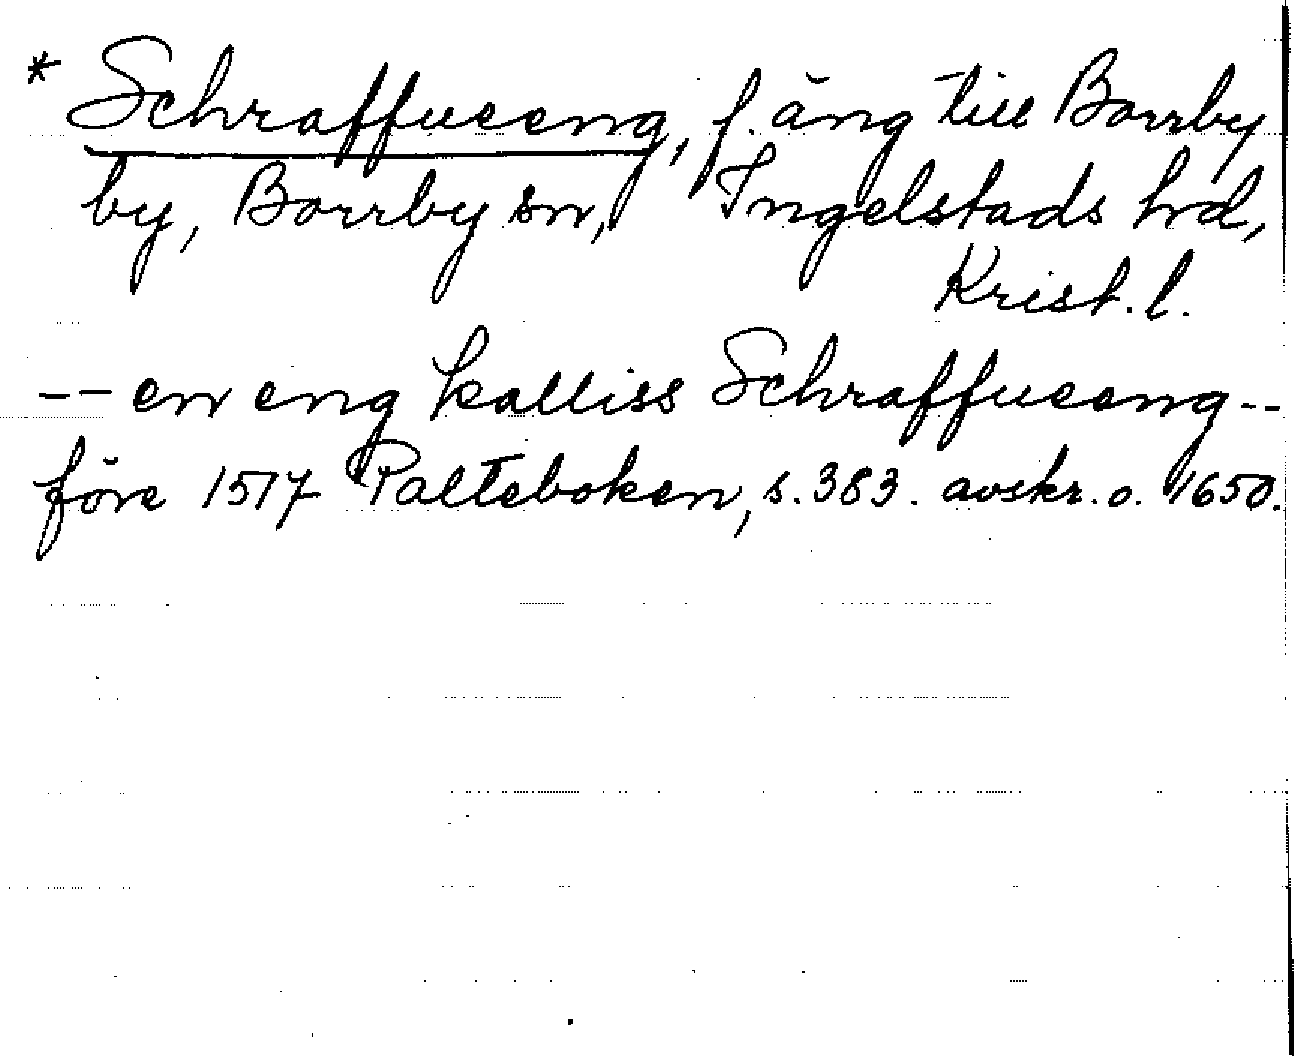 * Schraffueeng, f. äng till Borrby
by, Borrby sn, Ingelstads hd,
Krist. l.
-- en eng kalliss Schraffueeng --
före 1517 Palteboken, s. 383. avskr. o. 1650.